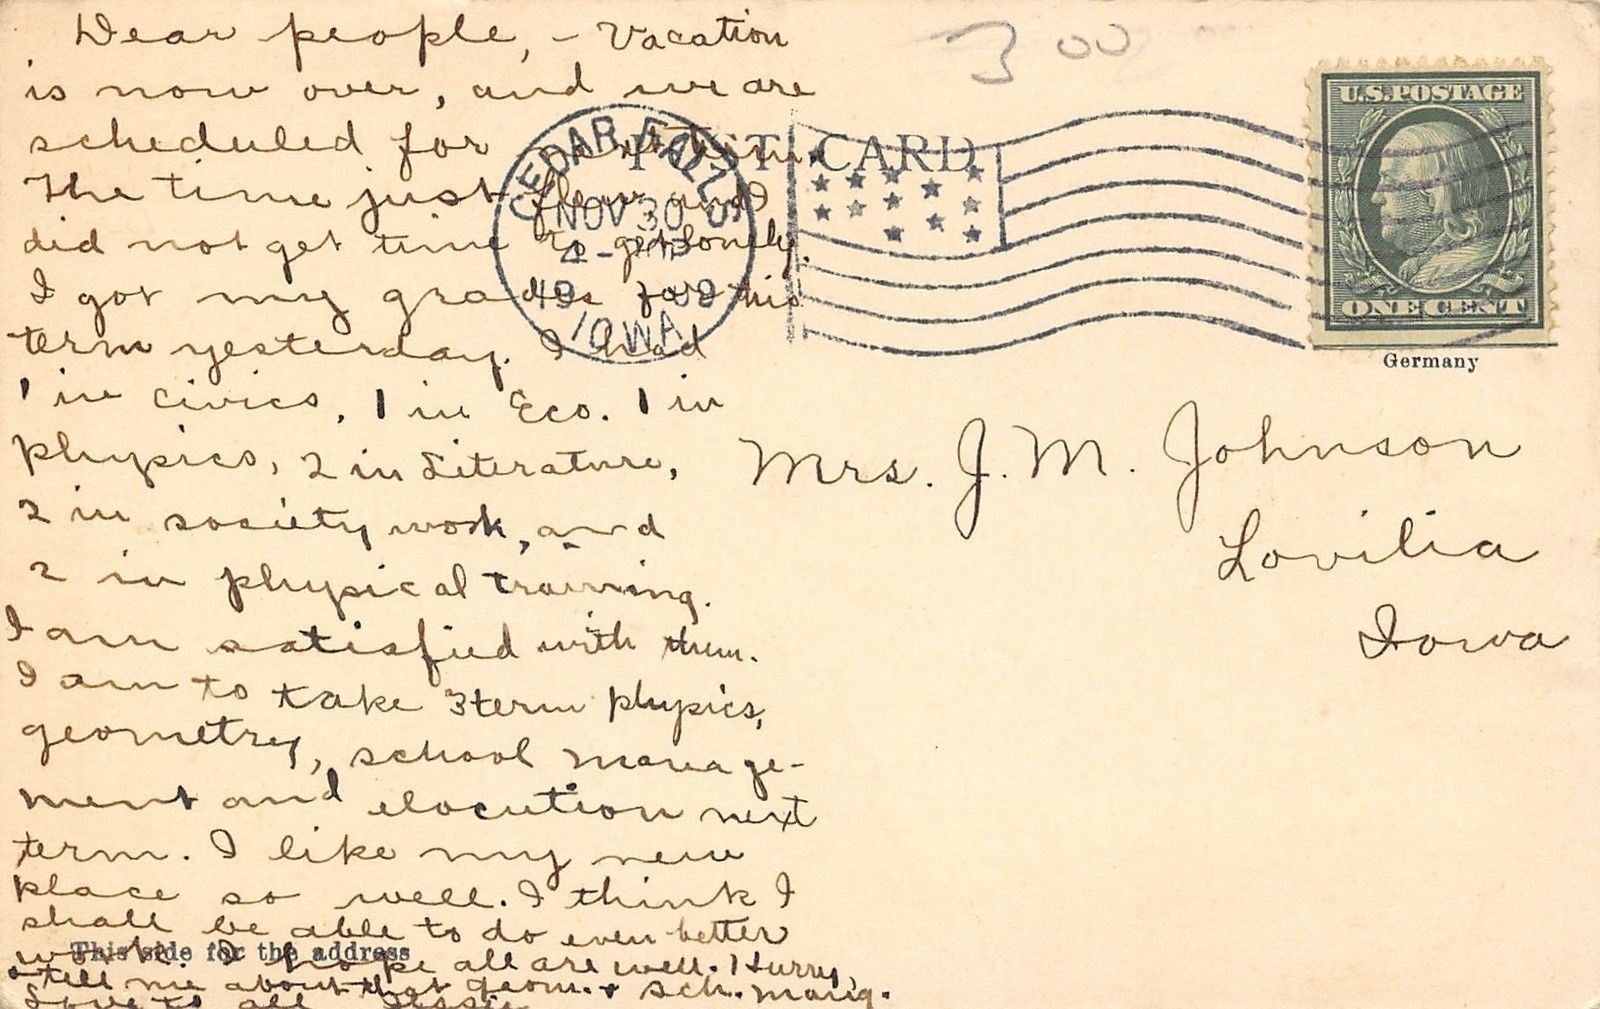 Dear people, - Vacation
is now over, and we are
scheduled for
The time just flew, and I
did not get time to get lonely.
I got my grades for this
term yesterday. I had
1 in civics, 1 in Eco. 1 in
physics, 2 in Literature,
2 in society work, and
2 in physical training.
I am satisfied with them.
I am to take 3 term physics,
geometry, school manage-
ment and elocution next
term. I like my new
place so well. I think I
shall be able to do even better
work. I hope all are well. Hurry,
& tell me about that geom. & sch. manag.
Love to all Jessie
This side for the address
3 00
POST CARD
CEDAR FALLS
NOV 30
IOWA
U.S. POSTAGE
ONE CENT
Germany
Mrs. J. M. Johnson
Lovilia
Iowa